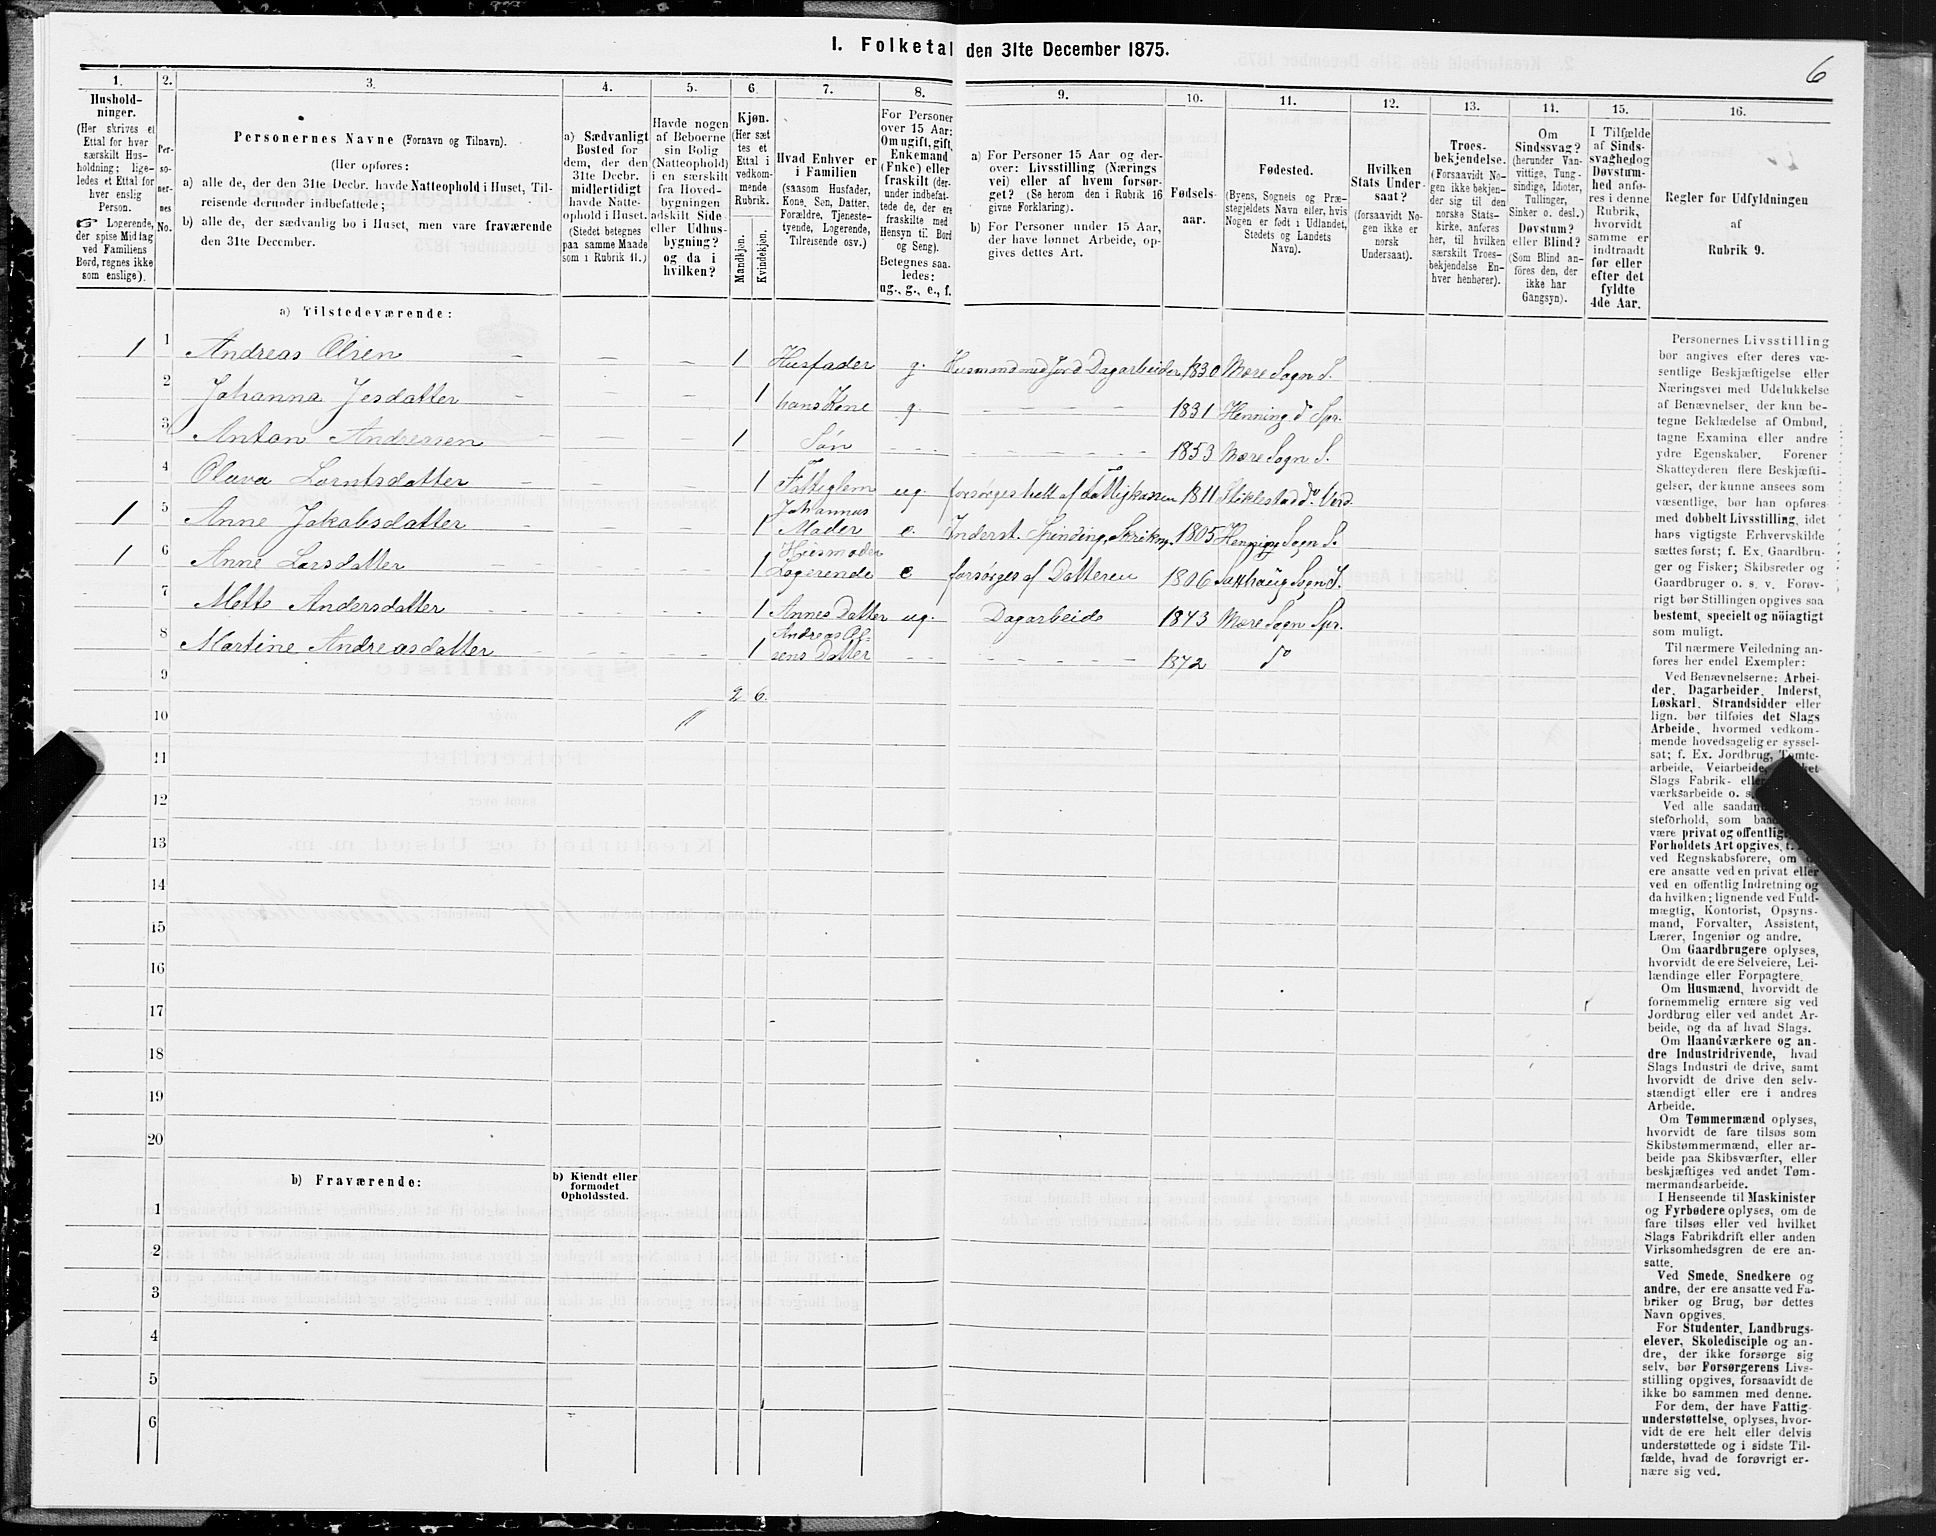 I. Folketal den 31te December 1875.
6
1. 2. 3. 4. 5. 6. 7. 8. 9. 10. 11. 12. 13. 14. 15. 16.
Hushold-
ninger.
(Her skrives et
Ettal for hver
særskilt Hus-
holdning; lige-
ledes et Ettal for
hver enslig
Person.
☞ Logerende,
der spise Middag
ved Familiens
Bord, regnes ikke
som enslige).
Per-
so-
ner-
nes
No.
Personernes Navne (Fornavn og Tilnavn).
(Her opføres:
a) alle de, der den 31te Decbr. havde Natteophold i Huset, Til-
reisende derunder indbefattede;
b) alle de, der sædvanlig bo i Huset, men vare fraværende
den 31te December.
a) Sædvanligt
Bosted for
dem, der den
31te Decbr.
midlertidigt
havde Natte-
ophold i Huset.
(Stedet betegnes
paa samme Maade
som i Rubrik 11.)
Havde nogen
af Beboerne
sin Bolig
(Natteophold)
i en særskilt
fra Hoved-
bygningen
adskilt Side-
eller Udhus-
bygning?
og da i
hvilken?
Kjøn.
(Her sæt-
tes et
Ettal i
vedkom-
mende
Rubrik.
Mandkjøn.
Kvindekjøn.
Hvad Enhver er
i Familien
(saasom Husfader,
Kone, Søn, Datter,
Forældre, Tjeneste-
tyende, Logerende,
Tilreisende osv.)
For Personer
over 15 Aar:
Om ugift, gift,
Enkemand
(Enke) eller
fraskilt (der-
under indbefat-
tede de, der ere
fraskilte med
Hensyn til Bord
og Seng).
Betegnes saa-
ledes:
ug., g., e., f.
a) For Personer 15 Aar og der-
over: Livsstilling (Nærings-
vei) eller af hvem forsør-
get? (Se herom den i Rubrik 16
givne Forklaring).
b) For Personer under 15 Aar,
der have lønnet Arbeide, op-
gives dettes Art.
Fødsels-
aar.
Fødested.
(Byens, Sognets og Præ-
stegjeldets Navn eller, hvis
Nogen er født i Udlandet,
Stedets og Landets
Navn).
Hvilken
Stats Under-
saat?
(forsaavidt No-
gen ikke er
norsk
Undersaat).
Troes-
bekjendelse.
(Forsaavidt No-
gen ikke bekjen-
der sig til den
norske Stats-
kirke, anføres
her, til hvilken
særskilt Troes-
bekjendelse En-
hver henhører).
Om
Sindssvag?
(herunder Van-
vittige, Tung-
sindige, Idioter,
Tullinger,
Sinker o. desl.)
Døvstum?
eller Blind?
(Som Blind an-
føres den, der
ikke har
Gangsyn).
I Tilfælde
af Sinds-
svaghed og
Døvstum-
hed anfø-
res i denne
Rubrik,
hvorvidt
samme er
indtraadt
før eller
efter det
fyldte
4de Aar.
Regler for Udfyldningen
af
Rubrik 9.
a) Tilstedeværende:
1 1 Andreas Olsen — — — 1 Husfader g. Husmand med Jord Dagarbeider 1830 Mære Sogn S.
2 Johanna Jesdatter — — — 1 hans Kone g. — 1831 Henning do Spr.
3 Anton Andreasen — — — 1 Søn — — 1853 Mære Sogn S.
4 Olava Lorntsdatter — — — 1 Fattiglem ug. forsørges helt af Fattigkassen 1811 Stiklestad do. Verd.
1 5 Anne Jakobsdatter — — — 1 Johannas
Moder e. Inderst. Spinding, Strikng. 1805 Henning Sogn S.
1 6 Anne Larsdatter — — — 1 Husmoder
Logerende e forsørges af Datteren 1806 Saxhaug Sogn I.
7 Mette Andersdatter — — — 1 Annes Datter ug. Dagarbeide 1843 Mære Sogn Spr.
8 Martine Andreasdatter — — — 1 Andreas Ol-
sens Datter — — 1872 do
9 2 6.
10
11
12
13
14
15
16
17
18
19
20
b) Fraværende:
b) Kjendt eller
formodet
Opholdssted.
1
2
3
4
5
6
Personernes Livsstilling
bør angives efter deres væ-
sentlige Beskjæftigelse eller
Næringsvei med Udelukkelse
af Benævnelser, der kun be-
tegne Beklædelse af Ombud,
tagne Examina eller andre
ydre Egenskaber. Forener
Skatteyderen flere Beskjæfti-
gelser, der kunne ansees som
væsentlige, bør han opføres
med dobbelt Livsstilling, idet
hans vigtigste Erhvervskilde
sættes først; f. Ex. Gaardbru-
ger og Fisker; Skibsreder og
Gaardbruger o. s. v. Forøv-
rigt bør Stillingen opgives saa
bestemt, specielt og nöiagtigt
som muligt.
Til nærmere Veiledning an-
føres her endel Exempler:
Ved Benævnelserne: Arbei-
der, Dagarbeider, Inderst,
Løskarl, Strandsidder eller
lign. bør tilføies det Slags
Arbeide, hvormed vedkom-
mende hovedsagelig er syssel-
sat; f. Ex. Jordbrug, Tomte-
arbeide, Veiarbeide,
Slags Fabrik- eller
værksarbeide o. s.
Ved alle
steforhold, som
være privat og offentlig,
Forholdets Art opgives,
ved Regnskabsførere, om
ere ansatte ved en privat eller
ved en offentlig Indretning og
da hvilken; lignende ved Fuld-
mægtig, Kontorist, Opsyns-
mand, Forvalter, Assistent,
Lærer, Ingeniør og andre.
Om Gaardbrugere oplyses,
hvorvidt de ere Selveiere, Lei-
lændinge eller Forpagtere.
Om Husmænd, hvorvidt de
fornemmelig ernære sig ved
Jordbrug eller ved andet Ar-
beide, og da af hvad Slags.
Om Haandværkere og an-
dre Industridrivende, hvad
Slags Industri de drive, samt
hvorvidt de drive den selv-
stændigt eller ere i andres
Arbeide.
Om Tømmermænd oplyses,
hvorvidt de fare tilsøs som
Skibstømmermænd, eller ar-
beide paa Skibsværfter, eller
beskjæftiges ved andet Tøm-
mermandsarbeide.
I Henseende til Maskinister
og Fyrbødere oplyses, om de
fare tilsøs eller ved hvilket
Slags Fabrikdrift eller anden
Virksomhedsgren de ere an-
satte.
Ved Smede, Snedkere og
andre, der ere ansatte ved Fa-
briker og Brug, bør dettes
Navn opgives.
For Studenter, Landbrugs-
elever, Skoledisciple og an-
dre, der ikke forsørge sig
selv, bør Forsørgerens Livs-
stilling opgives, forsaavidt de
ikke bo sammen med denne.
For dem, der have Fattig-
understøttelse, oplyses, hvor-
vidt de ere helt eller delvis
understøttede og i sidste Til-
fælde, hvad de forøvrigt er-
nære sig ved.